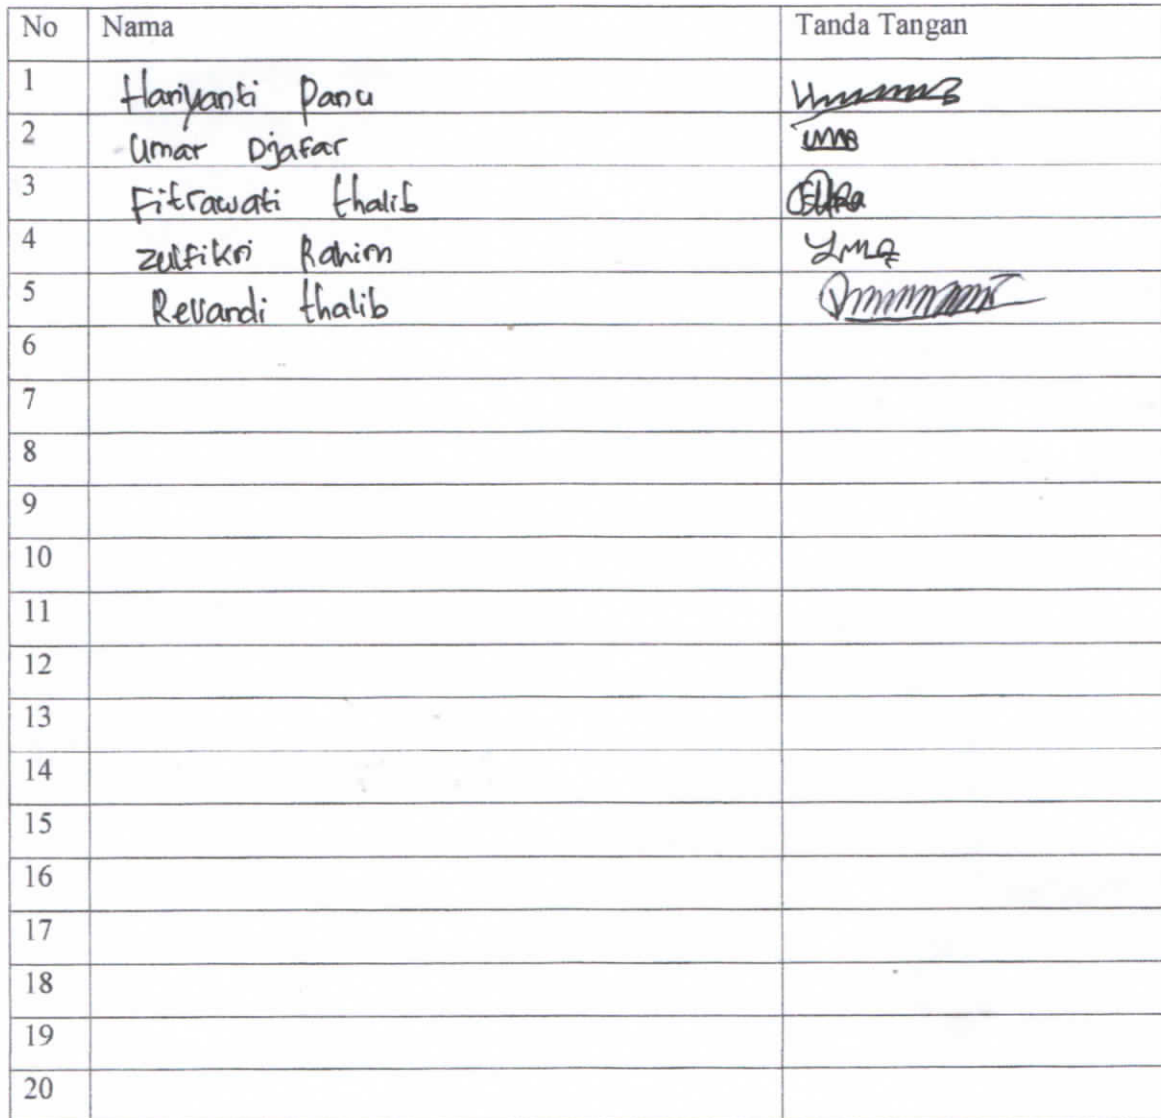 No Nama Tanda Tangan
1 Hariyanti Panu
2 Umar Djafar
3 Fitrawati thalib
4 zulfikri Rahim
5 Revandi thalib
6
7
8
9
10
11
12
13
14
15
16
17
18
19
20